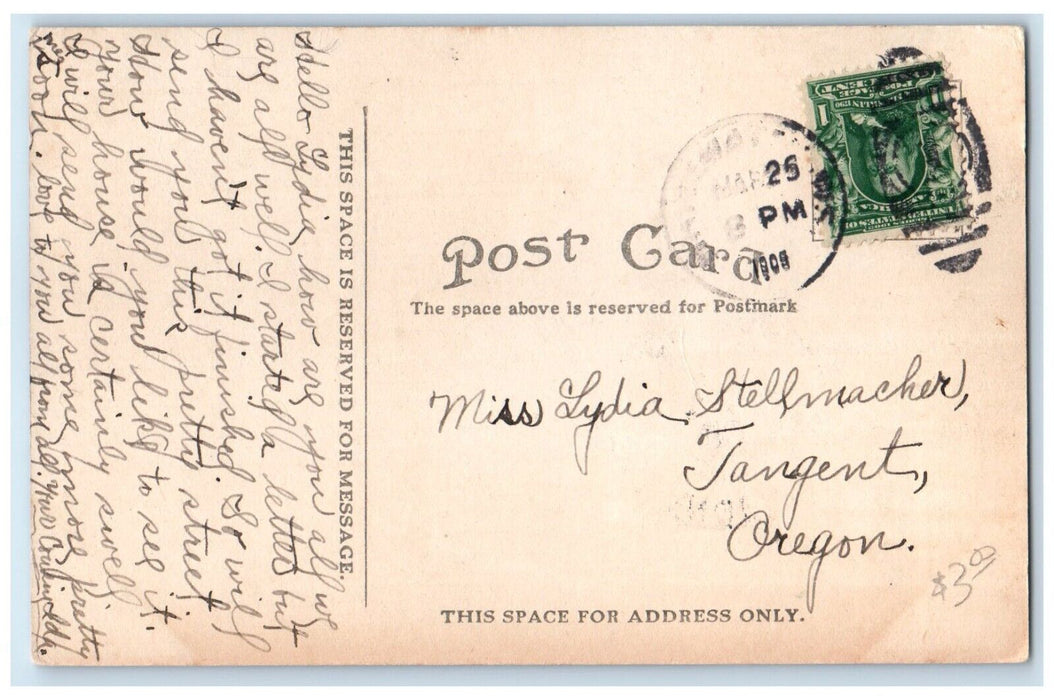 Hello Lydia how are you all we
are all well. I started a letter but
I haven't got it finished. So will
send you this pretty street
How would you like to see it.
your house is certainly swell
I will send you some more pretty
soon. love to you all from all. Your Cousin
THIS SPACE IS RESERVED FOR MESSAGE.
1
MAR 25
8 PM
Post Card
The space above is reserved for Postmark
Miss Lydia Stellmacher,
Tangent,
Oregon.
$3.00
THIS SPACE FOR ADDRESS ONLY.